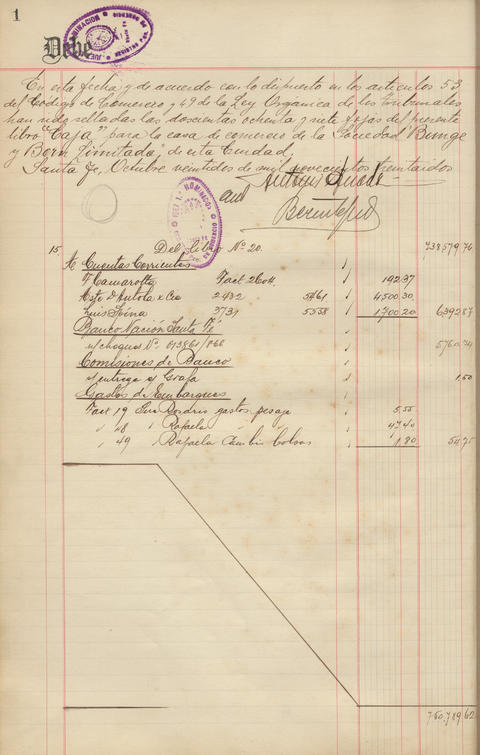 1
Debe
En esta fecha y de acuerdo con lo dispuesto en los artículos 53
del Código de Comercio y 49 de la Ley Orgánica de los Tribunales
han sido selladas las doscientas ochenta y siete fojas del presente
libro "Caja" para la casa de comercio de la Sociedad Bunge
y Born Limitada" de esta Ciudad.
Santa Fe, Octubre veintidos de mil novecientos treintaidos
15 Del Libro No. 20. 738579.76
A Cuentas Corrientes
F Camarotta Fact 192.37
2432 5461 4500.30
Luis 3739 5558 1700.20 639287
Banco Nación Santa Fé
s/cheques No. 013861/866 5760.74
Comisiones de Banco
s/entrega 1,50
Gastos de Embarques
Fact 19 Rosario gastos pesaje 5,55
" 48 " Rafaela " " 47.40
" 49 " Rafaela Cambio bolsas 1.80 54.75
750.789.62